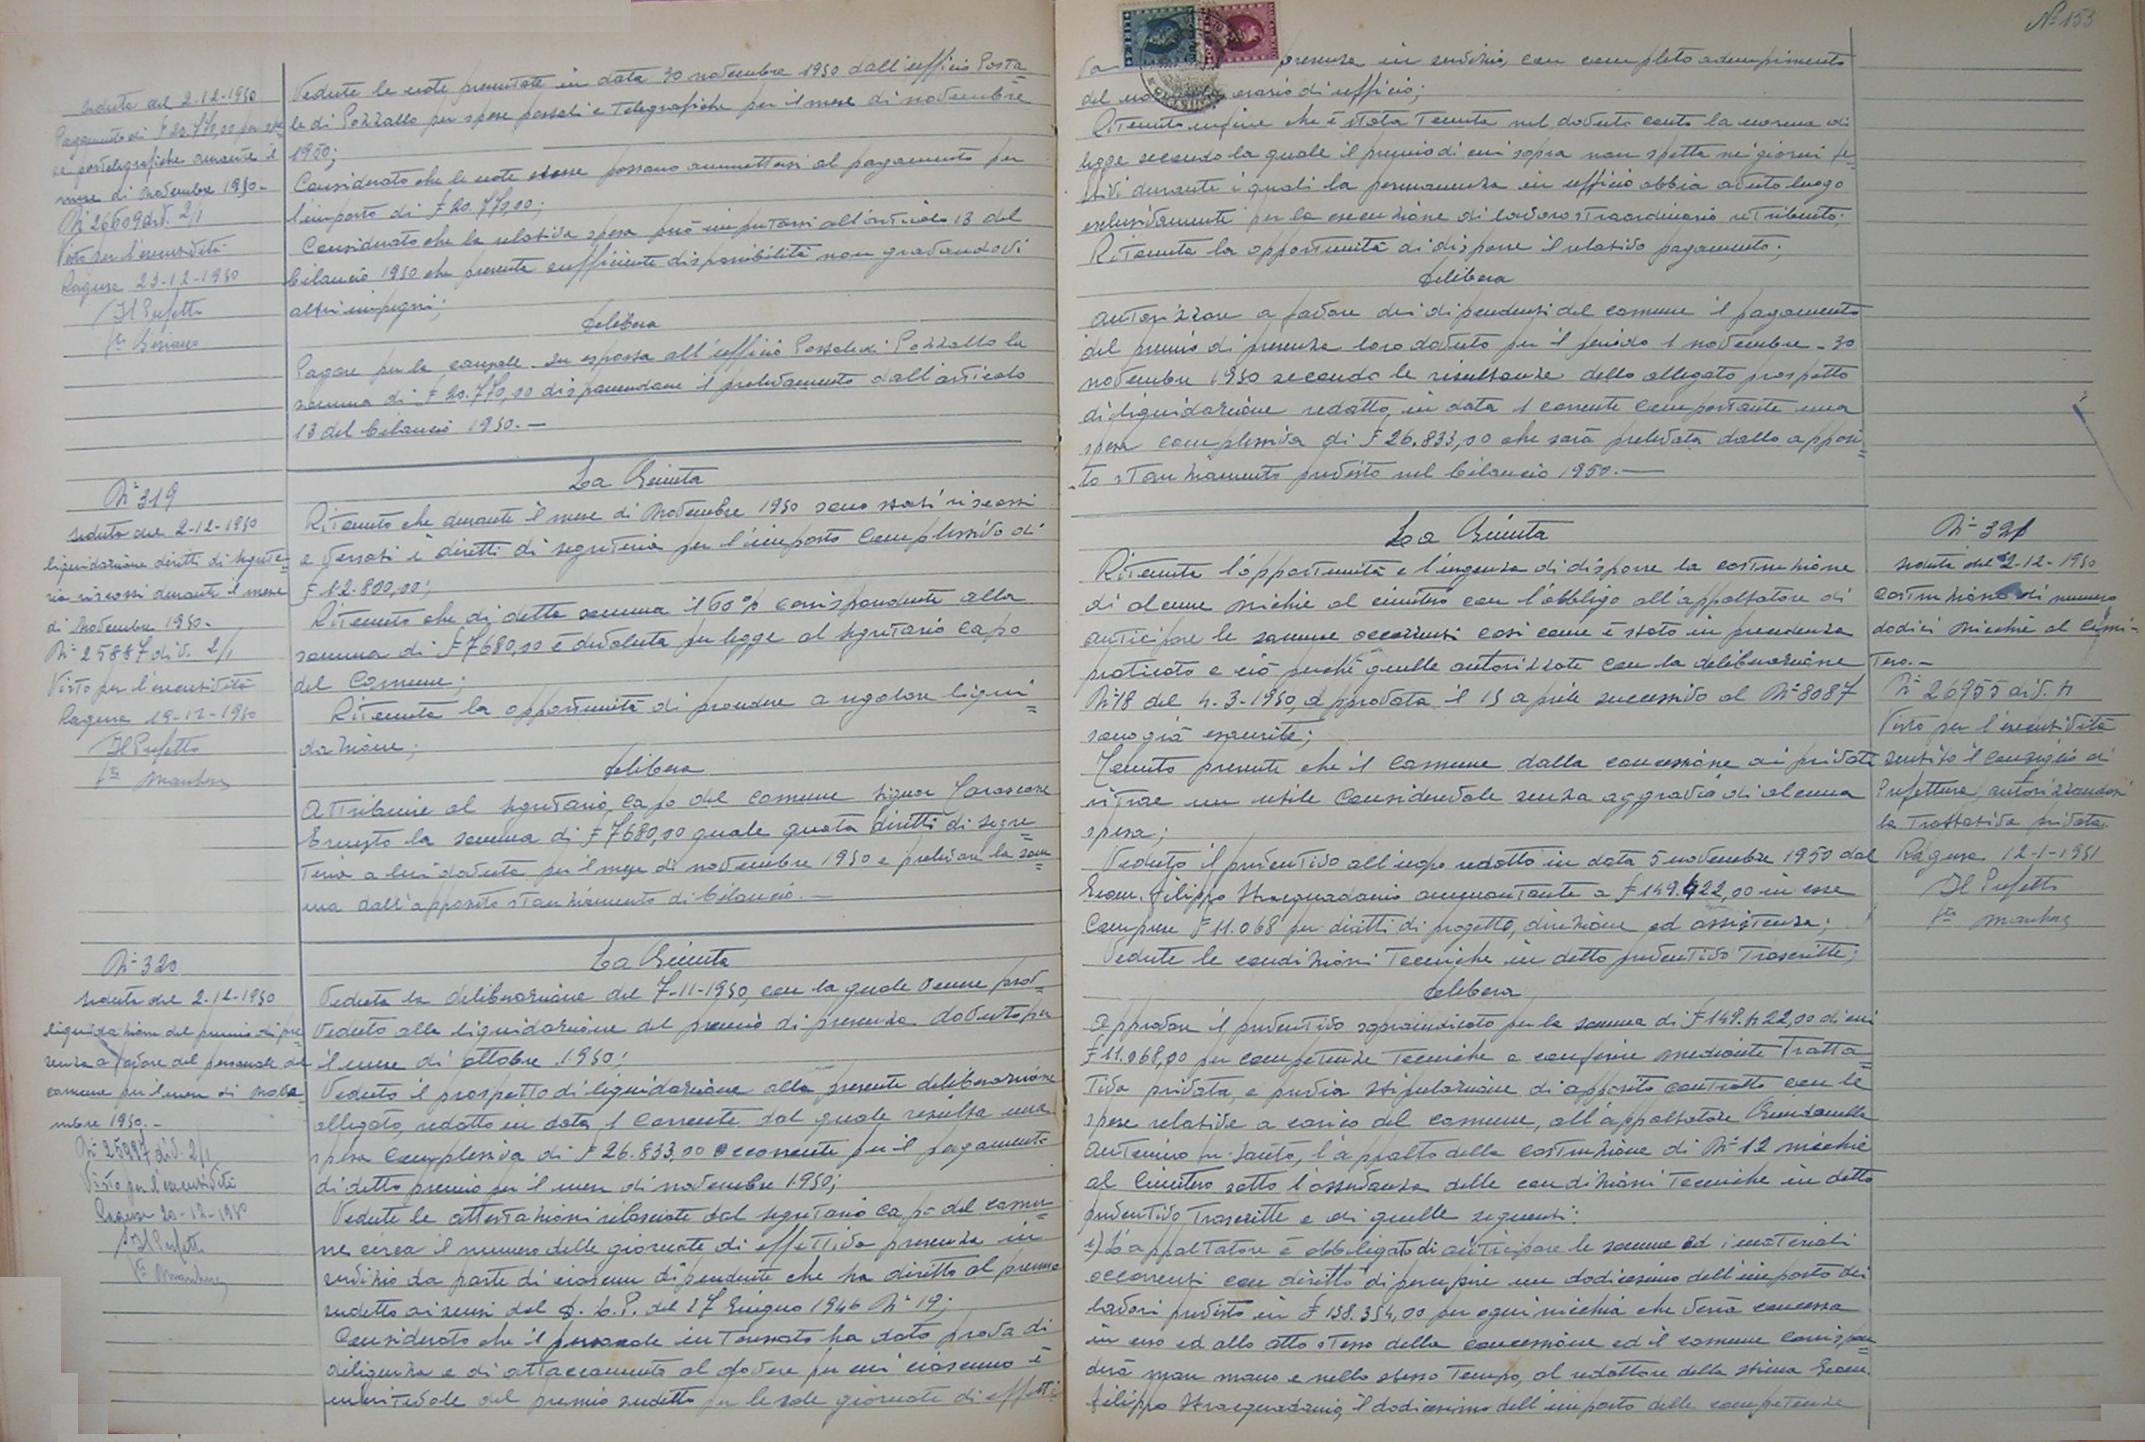 seduta del 2-12-1950
Pagamento di £ 20.770,00 per spe
se postelegrafiche durante il
mese di Novembre 1950-
N° 26609 div. 2/1
Visto per l'esecutività
Ragusa 23-12-1950
Il Prefetto
Vedute le note presentate in data 30 novembre 1950 dall'ufficio Posta=
le di Pozzallo per spese postali e telegrafiche per il mese di novembre
1950;
Considerato che le note stesse possono ammettersi al pagamento per
l'importo di £ 20.770,00;
Considerato che la relativa spesa può imputarsi all'articolo 13 del
bilancio 1950 che presenta sufficiente disponibilità non gravandovi
altri impegni;
delibera
Pagare per la causale su esposta all'ufficio Postale di Pozzallo la
somma di £ 20.770,00 disponendone il prelevamento dall'articolo
13 del bilancio 1950.-
N° 319
seduta del 2-12-1950
liquidazione diritti di segrete=
ria riscossi durante il mese
di Novembre 1950.
N° 25887 div. 2/1
Visto per l'esecutività
Ragusa 19-12-1950
Il Prefetto
La Giunta
Ritenuto che durante il mese di Novembre 1950 sono stati riscossi
e versati i diritti di segreteria per l'importo complessivo di
£ 12.800,00;
Ritenuto che di detta somma il 60% corrispondente alla
somma di £ 7680,00 è devoluta per legge al segretario capo
del Comune;
Ritenuta la opportunità di prendere a regolare liqui=
dazione;
delibera
Attribuire al segretario capo del comune signor
Ernesto la somma di £ 7680,00 quale quota diritti di segre=
teria a lui dovuta per il mese di novembre 1950 e prelevare la som=
ma dall'apposito stanziamento di bilancio.-
N° 320
seduta del 2-12-1950
liquidazione del premio di pre
senza a favore del personale del
comune per il mese di Nove=
mbre 1950.-
div. 2/1
Visto per l'esecutività
Ragusa 20-12-1950
Il Prefetto
La Giunta
Veduta la deliberazione del 7-11-1950, con la quale venne prov=
veduto alla liquidazione del premio di presenza dovuto per
il mese di ottobre 1950;
Veduto il prospetto di liquidazione alla presente deliberazione
allegato, redatto in data 1 corrente dal quale risulta una
spesa complessiva di £ 26.833,00 occorrente per il pagamento
di detto premio per il mese di novembre 1950;
Vedute le attestazioni rilasciate dal segretario capo del comu=
ne circa il numero delle giornate di effettiva presenza in
servizio da parte di ciascun dipendente che ha diritto al premio
sudetto ai sensi del del 27 Giugno 1946 N° 19;
Considerato che il personale interessato ha dato prova di
diligenza e di attaccamento al dovere per cui ciascuno è
meritevole del premio sudetto per le sole giornate di effetti=
N° 153
va presenza in servizio, con completo adempimento
del orario di ufficio;
Ritenuto infine che è stata tenuta nel dovuto conto la norma di
legge secondo la quale il premio di cui sopra non spetta nei giorni fe=
stivi durante i quali la permanenza in ufficio abbia avuto luogo
esclusivamente per la esecuzione di lavoro straordinario retribuito;
Ritenuta la opportunità di disporre il relativo pagamento;
delibera
Autorizzare a favore dei dipendenti del comune il pagamento
del premio di presenza loro dovuto per il periodo 1 novembre - 30
novembre 1950 secondo le risultanze dello allegato prospetto
di liquidazione redatto in data 1 corrente comportante una
spesa complessiva di £ 26.833,00 che sarà prelevata dallo apposi=
to stanziamento previsto nel bilancio 1950.-
La Giunta
Ritenuta l'opportunità e l'urgenza di disporre la costruzione
di alcune nicchie al cimitero con l'obbligo all'appaltatore di
anticipare le somme occorrenti così come è stato in precedenza
praticato e ciò perchè quelle autorizzate con la deliberazione
N° 18 del 4-3-1950, approvata il 15 aprile successivo al N° 8087
sono già esaurite;
Tenuto presente che il Comune dalla concessione ai privati
ritrae un utile considerevole senza aggravio di alcuna
spesa;
Veduto il preventivo all'uopo redatto in data 5 novembre 1950 dal
Geom. Filippo Stracquadanio ammontante a £ 149.422,00 in esse
comprese £ 11.068 per diritti di progetto, direzione ed assistenza;
Vedute le condizioni tecniche in detto preventivo trascritte;
delibera
Approvare il preventivo sopraindicato per la somma di £ 149.422,00 di cui
£ 11.068,00 per competenze tecniche e conferire mediante tratta=
tiva privata, e previa stipulazione di apposito contratto con le
spese relative a carico del comune, all'appaltatore
Antonino fu Santo, l'appalto della costruzione di N° 12 nicchie
al Cimitero sotto l'osservanza delle condizioni tecniche in detto
preventivo trascritte e di quelle seguenti:
1) L'appaltatore è obbligato di anticipare le somme ed i materiali
occorrenti con diritto di percepire un dodicesimo dell'importo dei
lavori previsto in £ 138.354,00 per ogni nicchia che verrà concessa
in uso ed allo atto stesso della concessione ed il comune corrispon
derà man mano e nello stesso tempo, al redattore della stima Geom.
Filippo Stracquadanio, il dodicesimo dell'importo delle competenze
N° 321
seduta del 2-12-1950
Costruzione di numero
dodici nicchie al Cimi-
tero.-
N° 26955 div. 4
Visto per l'esecutività
sentito il Consiglio di
Prefettura, autorizzandosi
la trattativa privata.
Ragusa 12-1-1951
Il Prefetto